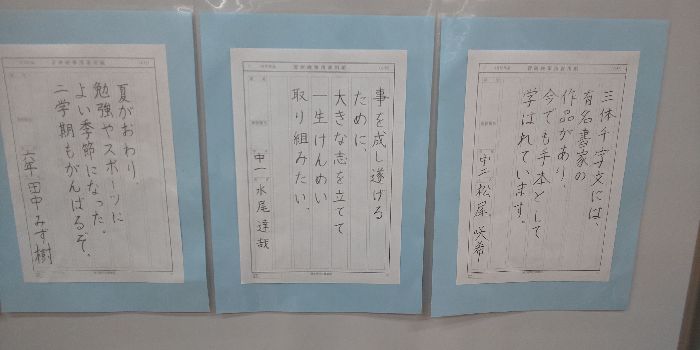 三体千字文には、
有名書家の
作品があり、
今でも手本として
学ばれています。
中二 松尾 咲希
事を成し遂げる
ために、
大きな志を立てて
一生けんめい
取り組みたい。
中一 水尾 達哉
夏がおわり、
勉強やスポーツに
よい季節になった。
二学期もがんばるぞ。
六年 田中 みず樹